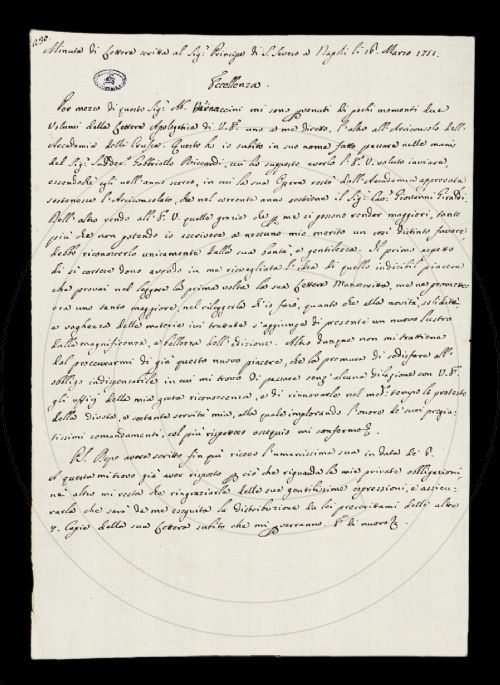 Minuta di Lettera scritta al Sig.r Principe di S. Severo a Napoli li 16. Marzo 1751.
Eccellenza.
Per mezzo di questo Sig.r Ab. mi sono pervenuti da pochi momenti due
Volumi della Lettera Apologetica di V. E. uno a me diretto, l'altro all'Arciconsolo dell'
Accademia della Crusca. Questo ho io subito in suo nome fatto passare nelle mani
del Sig.r Suddec.o Gabbriello Riccardi, cui ho supposto averlo l'E. V. voluto inviare,
essendochè egli nell'anno scorso, in cui la sua Opera restò dall'Accademia approvata
sostenesse l'Arciconsolato, che nel corrente anno sostiene il Sig.r Cav. Giovanni Giraldi.
Dell'altro rendo all'E. V. quelle grazie che per me si possono render maggiori, tanto
più che non potendo io ascrivere a nessuno mio merito un così distinto favore
debbo riconoscerlo unicamente dalla sua bontà, e gentilezza. Il primo aspetto
di sì cortese dono avendo in me risvegliata l'idea di quello indicibil piacere
che provai nel leggere la prima volta la sua Lettera Manoscritta, me ne promette
ora uno tanto maggiore, nel rileggerla ch'io farò, quanto che alla novità, solidità
e vaghezza delle materie ivi trattate s'aggiunge di presente un nuovo lustro
dalla magnificenza, e bellezza dell'edizione. Altro dunque non mi trattiene
dal procurarmi di già questo nuovo piacere, che la premura di sodisfare all'
obbligo indispensabile in cui mi trovo di passare senz'alcuna dilazione con V. E.
gli uffizj della mia grata riconoscenza, e di rinnovarle nel med.o tempo le proteste
della divota, e costante servitù mia, alla quale implorando l'onore de' suoi pregia-
tissimi comandamenti, col più rispettoso ossequio mi confermo
P.S. Dopo avere scritto fin quì ricevo l'umanissima sua in data de' 9.
A questa mi trovo già aver risposto per ciò che riguarda le mie private obbligazioni,
nè altro mi resta che ringraziarla delle sue gentilissime espressioni, e assicu-
rarla che sarà da me eseguita la distribuzione da lei prescrittami delle altre
Copie della sua Lettera subito che mi perverranno. E di nuovo